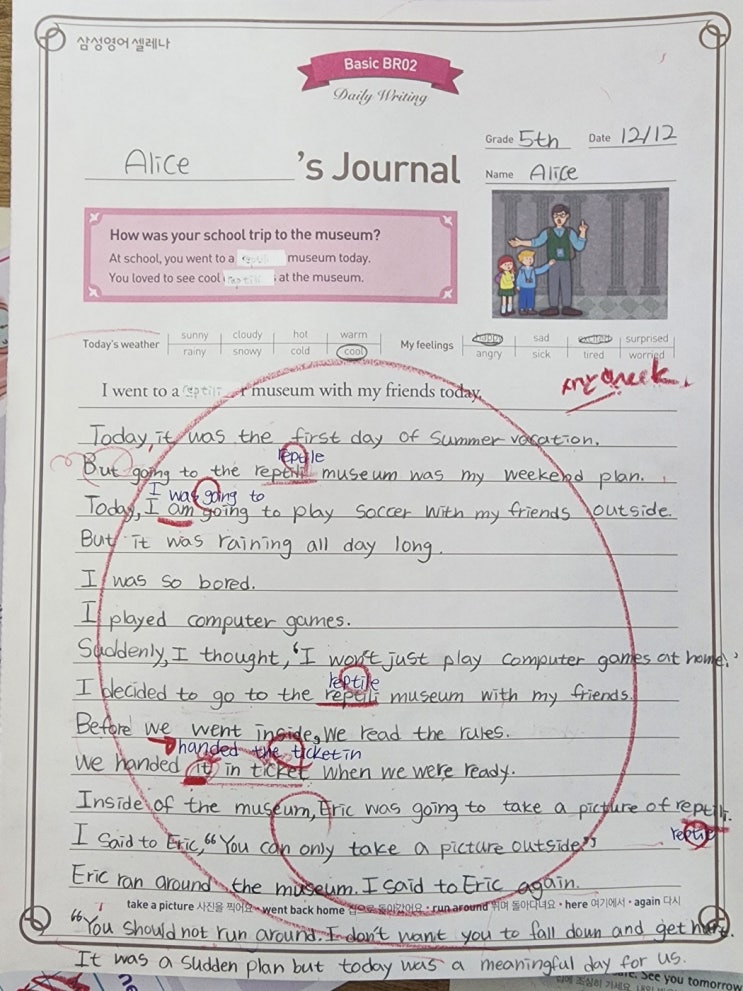 삼성영어 셀레나
Basic BR02
Daily Writing
Grade 5th Date 12/12
Alice 's Journal
Name Alice
How was your school trip to the museum?
At school, you went to a reptili museum today.
You loved to see cool reptili at the museum.
Today's weather sunny cloudy hot warm
rainy snowy cold cool
My feelings happy sad surprised
angry sick tired worried
I went to a reptili museum with my friends today.
Today, it was the first day of summer vacation.
reptile
But going to the reptili museum was my weekend plan.
I was going to
Today, I am going to play soccer with my friends outside.
But it was raining all day long.
I was so bored.
I played computer games.
Suddenly, I thought, 'I won't just play computer games at home.'
reptile
I decided to go to the reptili museum with my friends.
Before we went inside, we read the rules.
handed the ticket in
We handed it in ticket when we were ready.
Inside of the museum, Eric was going to take a picture of reptili.
reptile
I said to Eric, "You can only take a picture outside"
Eric ran around the museum. I said to Eric again.
take a picture 사진을 찍어요 • went back home 집으로 돌아갔어요 • run around 뛰며 돌아다녀요 • here 여기에서 • again 다시
"You should not run around. I don't want you to fall down and get hurt.
It was a sudden plan but today was a meaningful day for us.
See you tomorrow